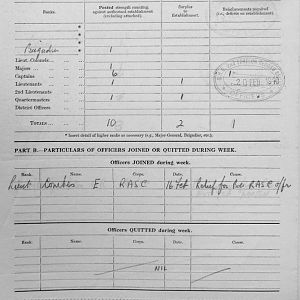 Ranks.
Posted strength counting against authorized establishment (excluding attached).
Surplus to Establishment.
Reinforcements required (i.e., deficits on establishment).
* Brigadier 1
Lieut.-Colonels
Majors 1
Captains 6 1
Lieutenants 1 1
2nd Lieutenants
Quartermasters 1 1
District Officers
TOTALS 10 2 1
* Insert detail of higher ranks as necessary (i.e., Major-General, Brigadier, etc.).
PART B.—PARTICULARS OF OFFICERS JOINED OR QUITTED DURING WEEK.
Officers JOINED during week.
Rank. Name. Corps. Date. Cause.
Lieut E RASC 16 Feb Relief for RASC offr
Officers QUITTED during week.
Rank. Name. Corps. Date. Cause.
NIL